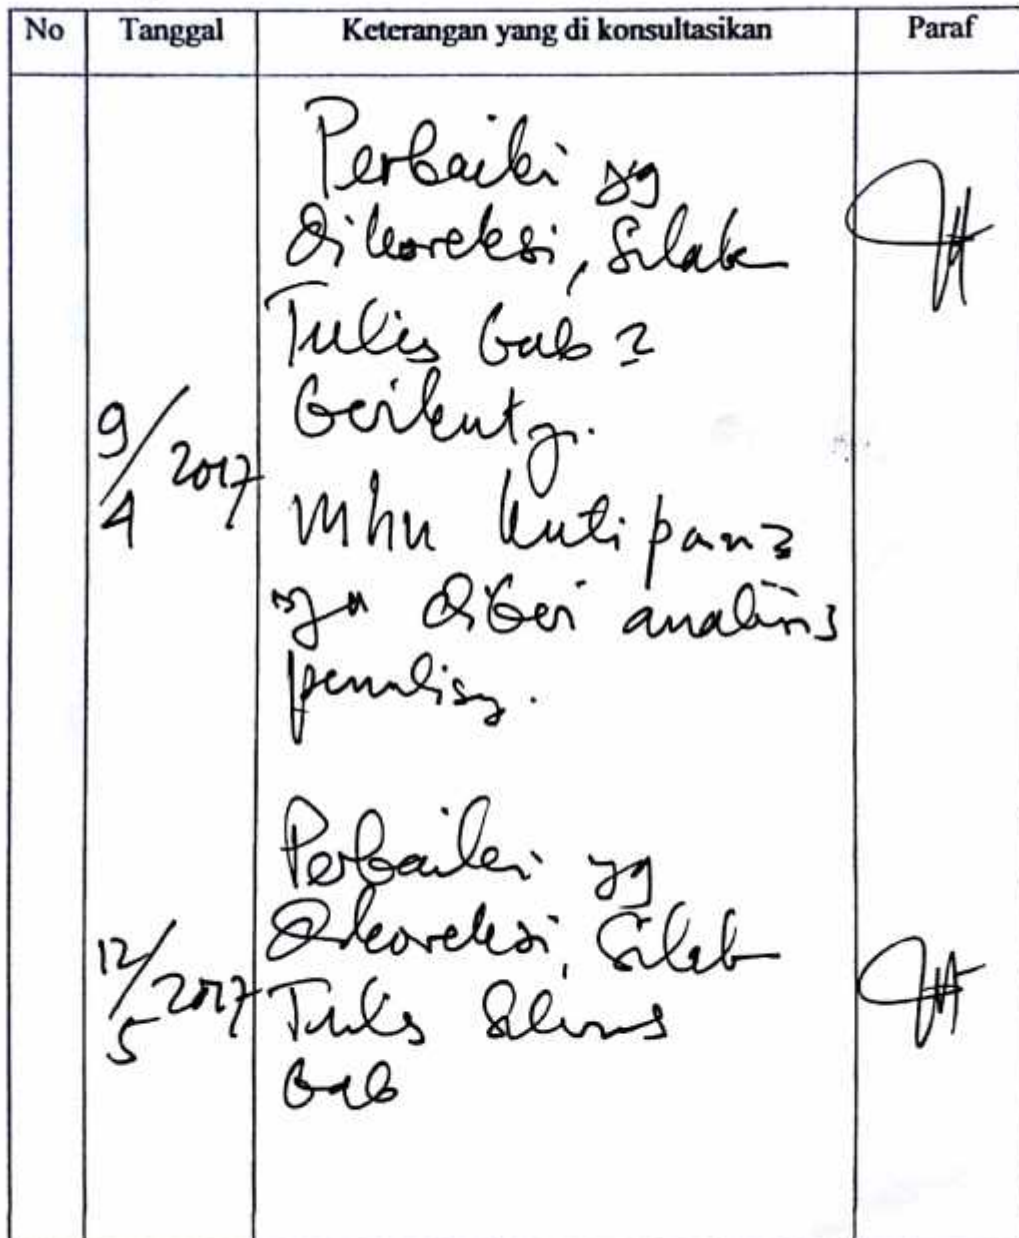 No Tanggal Keterangan yang di konsultasikan Paraf
Perbaiki yg
dikoreksi, Silak
Tulis bab 2
berikuty.
9/4 2017
Mhn kutipan2
yg diberi analisis
penulisy.
Perbaiki yg
dikoreksi, Silak
12/5 2017
Tulis
bab